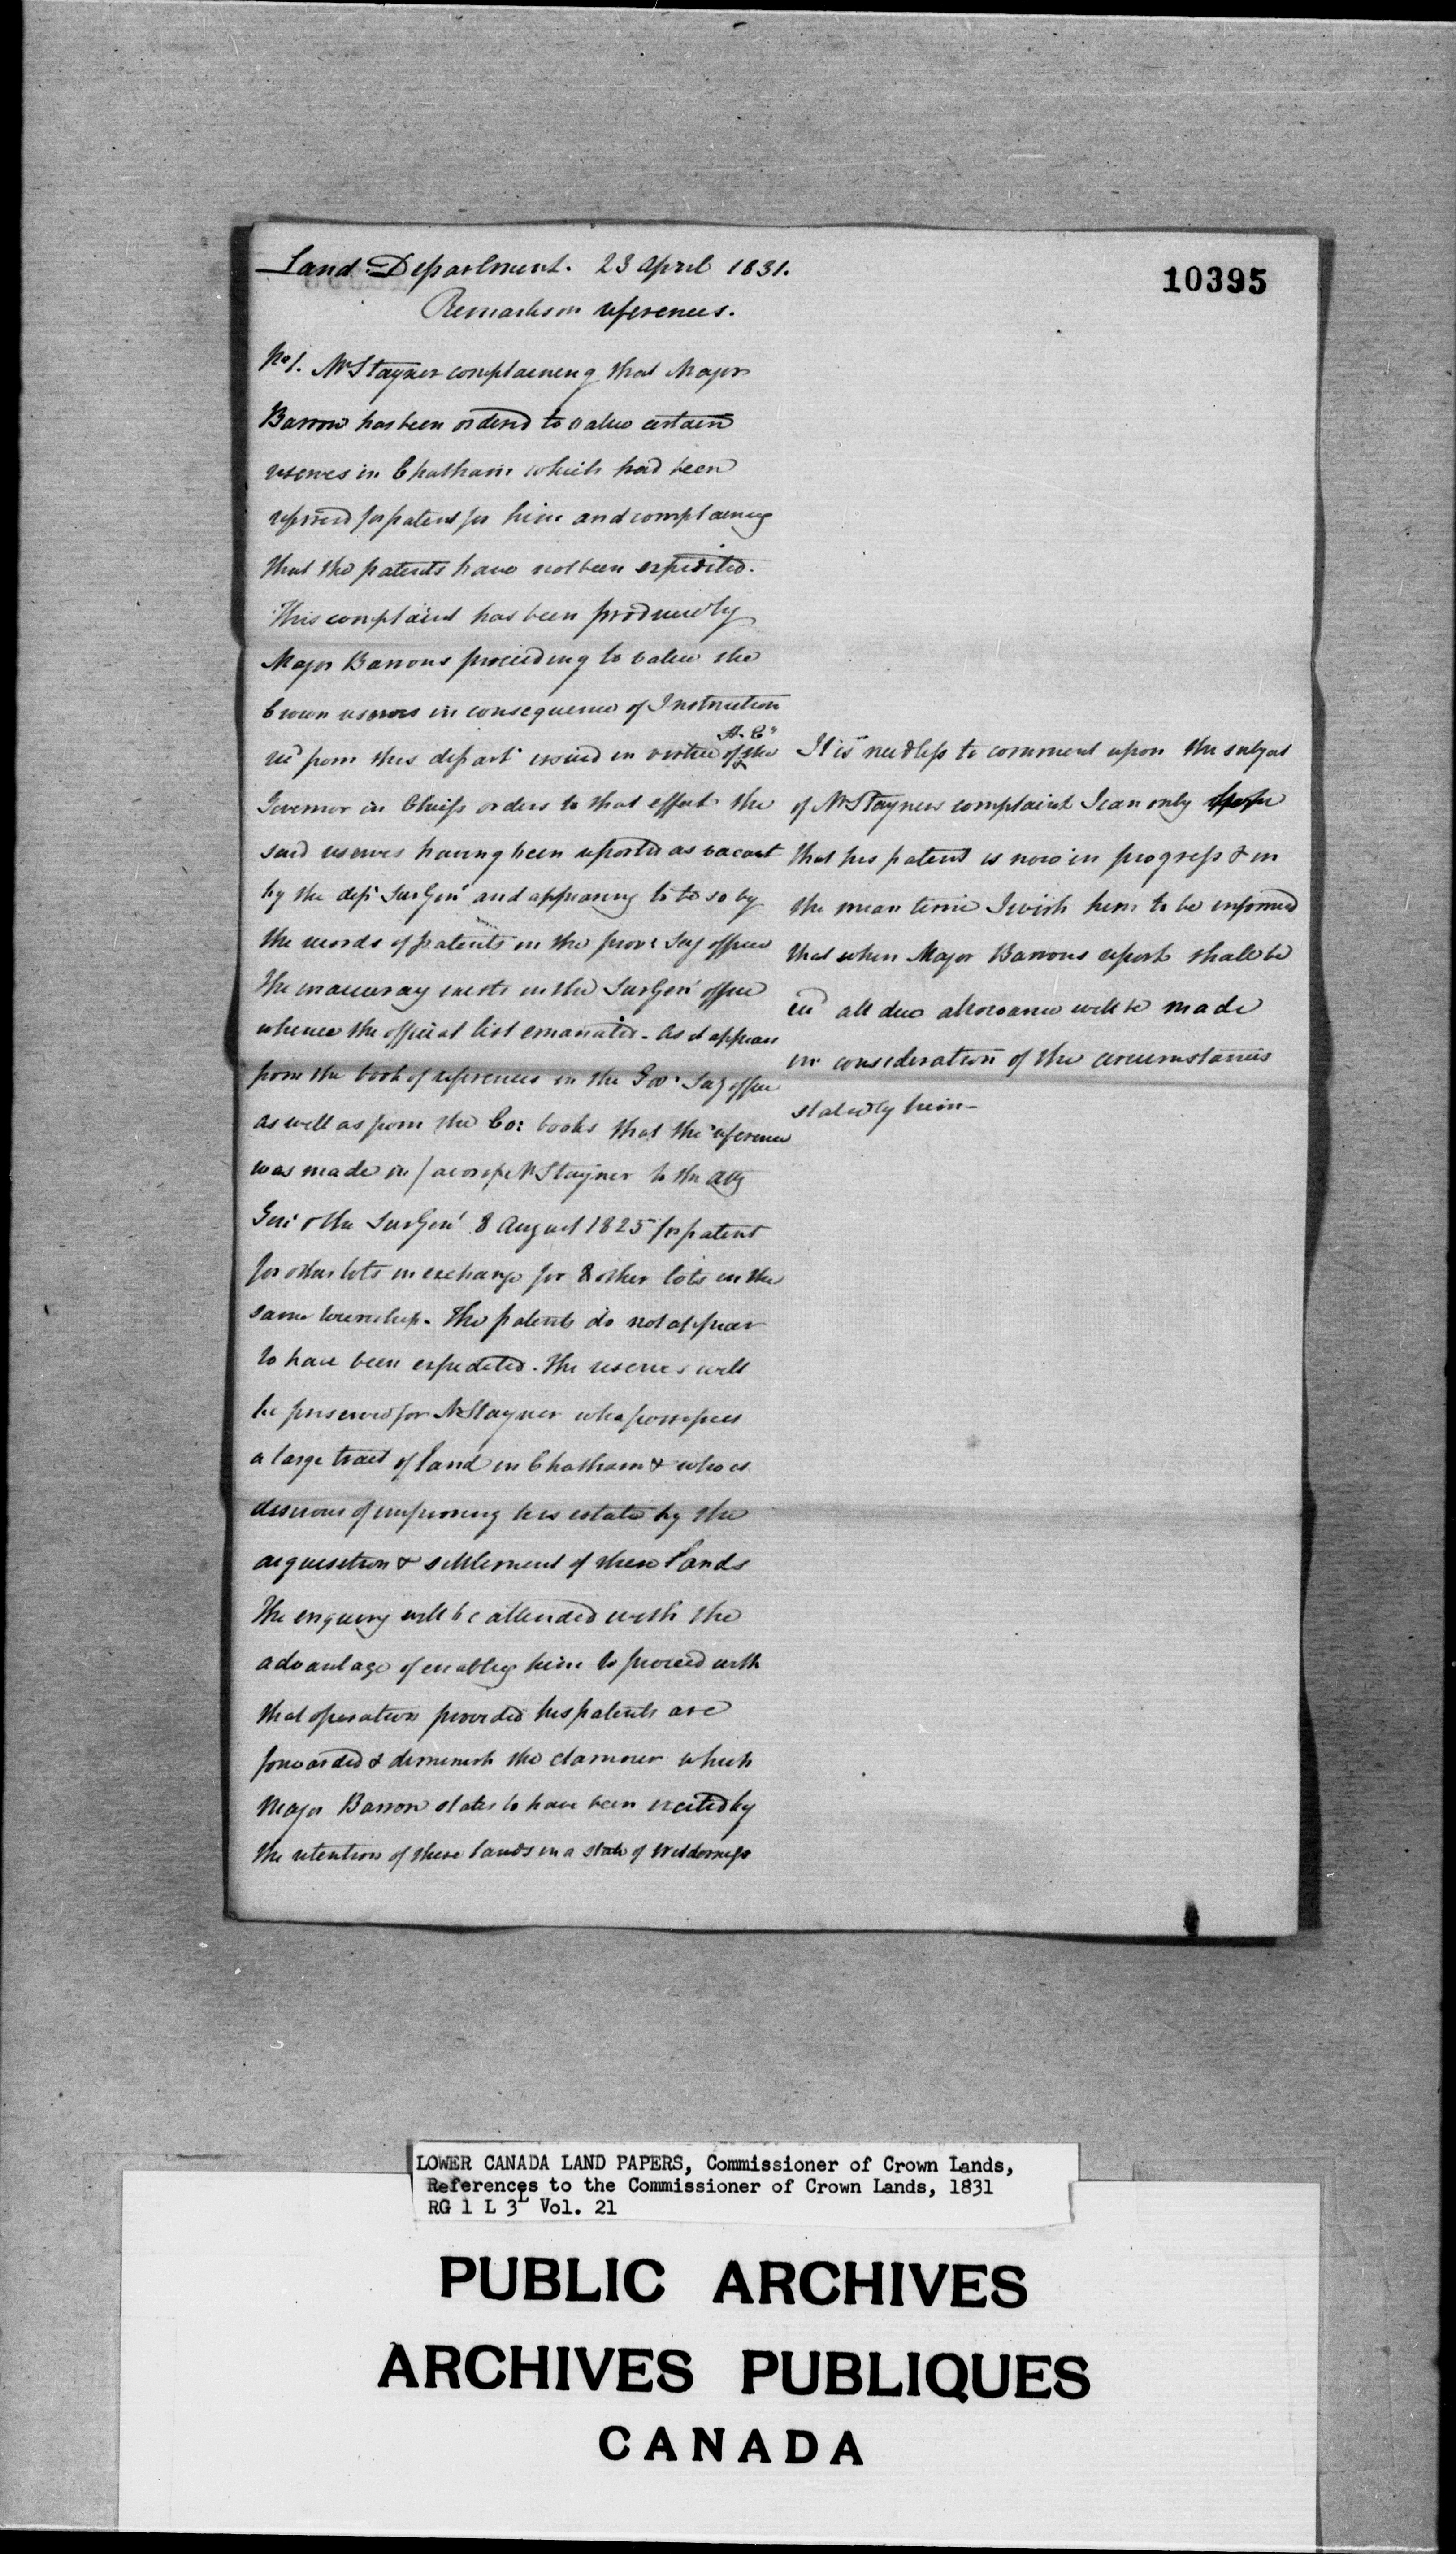 Land Department. 23 April 1831.
10395
Remarks on references.
No 1. Mr Stayner complaining that Major
Barron has been ordered to value certain
reserves in Chatham which had been
referred for patent for him and complaining
that the patents have not been expedited.
This complaint has been produced by
Major Barrons proceeding to value the
Crown reserves in consequence of Instruction
recd from this depart issued in virtue of the
Governor in Chiefs orders to that effect the
said reserves having been reported as vacant
by the depy Sur Genl and appearing to be so by
the records of patents in the provl Secy office
The inaccuracy exists in the Sur Genl office
whence the official list emanated. As it appears
from the book of references in the Govr Secy office
as well as from the Co: books that the reference
was made in favor of Mr Stayner to the Atty
Genl & the Sur Genl 8 August 1825 for patent
for other lots in exchange for 8 other lots in the
same township. The patents do not appear
to have been expedited. The reserves will
be preserved for Mr Stayner who possesses
a large tract of land in Chatham & who is
desirous of improving his estate by the
acquisition & settlement of these lands
The enquiry will be attended with the
advantage of enabling him to proceed with
that operation provided his patents are
forwarded & diminish the clamour which
Major Barron states to have been excited by
the retention of these lands in a state of wilderness
It is needless to comment upon the subject
of Mr Stayners complaint I can only
that his patent is now in progress & in
the mean time I wish him to be informed
that when Major Barrons report shall be
recd all due allowance will be made
in consideration of the circumstances
stated by him—
LOWER CANADA LAND PAPERS, Commissioner of Crown Lands,
References to the Commissioner of Crown Lands, 1831
RG 1 L 3L Vol. 21
PUBLIC ARCHIVES
ARCHIVES PUBLIQUES
CANADA